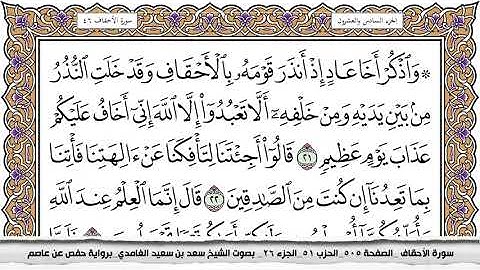 الجزء السادس والعشرون
سورة الأحقاف ٤٦
۞ وَٱذۡكُرۡ أَخَا عَادٍ إِذۡ أَنذَرَ قَوۡمَهُۥ بِٱلۡأَحۡقَافِ وَقَدۡ خَلَتِ ٱلنُّذُرُ
مِنۢ بَيۡنِ يَدَيۡهِ وَمِنۡ خَلۡفِهِۦٓ أَلَّا تَعۡبُدُوٓاْ إِلَّا ٱللَّهَ إِنِّيٓ أَخَافُ عَلَيۡكُمۡ
عَذَابَ يَوۡمٍ عَظِيمٖ ٢١ قَالُوٓاْ أَجِئۡتَنَا لِتَأۡفِكَنَا عَنۡ ءَالِهَتِنَا فَأۡتِنَا
بِمَا تَعِدُنَآ إِن كُنتَ مِنَ ٱلصَّـٰدِقِينَ ٢٢ قَالَ إِنَّمَا ٱلۡعِلۡمُ عِندَ ٱللَّهِ
سورة الأحقاف _الصفحة ٥٠٥_ الحزب ٥١_ الجزء ٢٦_ بصوت الشيخ سعد بن سعيد الغامدي_برواية حفص عن عاصم